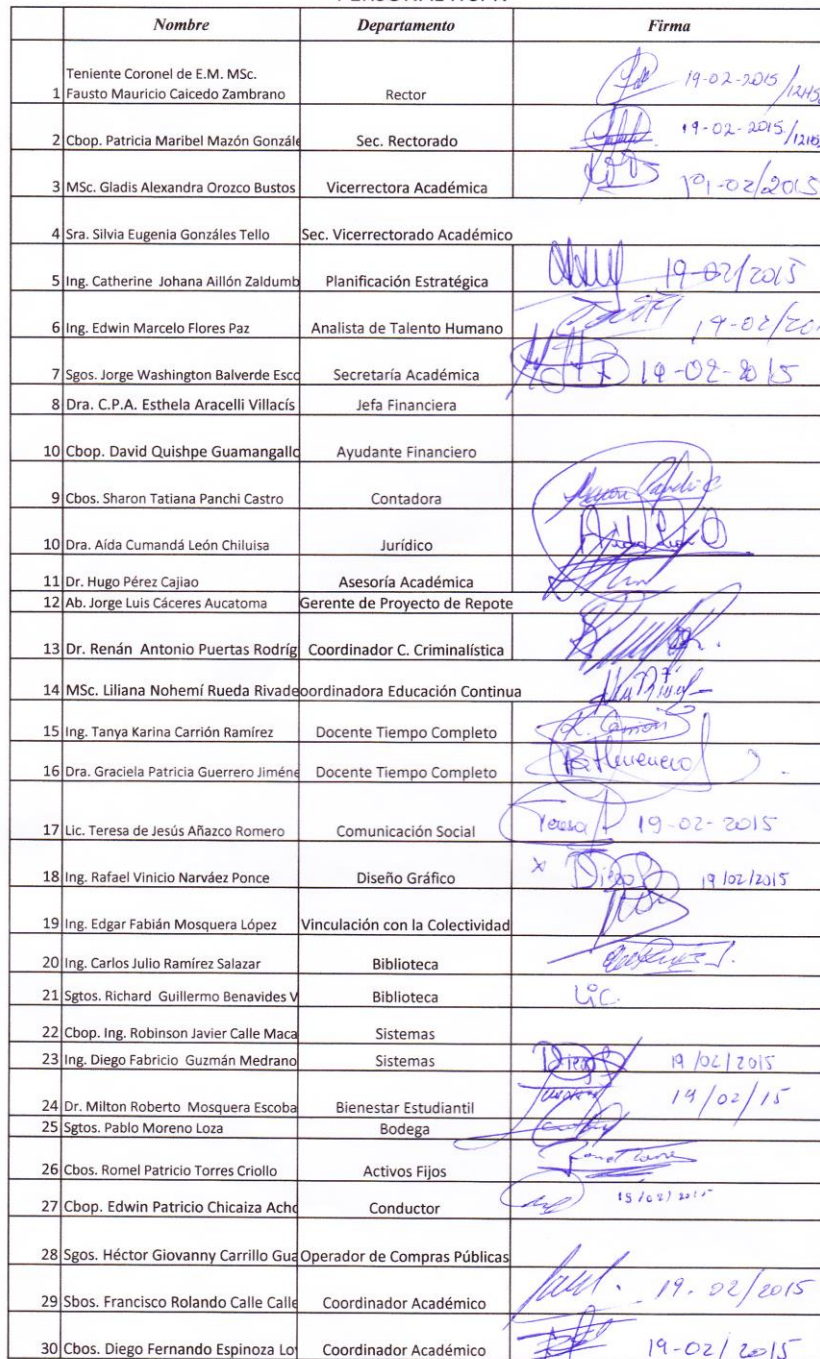 Nombre Departamento Firma
Teniente Coronel de E.M. MSc.
1 Fausto Mauricio Caicedo Zambrano Rector 19-02-2015
2 Cbop. Patricia Maribel Mazón Gonzále Sec. Rectorado 19-02-2015
3 MSc. Gladis Alexandra Orozco Bustos Vicerrectora Académica
4 Sra. Silvia Eugenia Gonzáles Tello Sec. Vicerrectorado Académico
5 Ing. Catherine Johana Aillón Zaldumb Planificación Estratégica 19-02/2015
6 Ing. Edwin Marcelo Flores Paz Analista de Talento Humano
7 Sgos. Jorge Washington Balverde Esco Secretaría Académica 19-02-2015
8 Dra. C.P.A. Esthela Aracelli Villacís Jefa Financiera
10 Cbop. David Quishpe Guamangallo Ayudante Financiero
9 Cbos. Sharon Tatiana Panchi Castro Contadora
10 Dra. Aída Cumandá León Chiluisa Jurídico
11 Dr. Hugo Pérez Cajiao Asesoría Académica
12 Ab. Jorge Luis Cáceres Aucatoma Gerente de Proyecto de Repote
13 Dr. Renán Antonio Puertas Rodríg Coordinador C. Criminalística
14 MSc. Liliana Nohemí Rueda Rivade oordinadora Educación Continua
15 Ing. Tanya Karina Carrión Ramírez Docente Tiempo Completo
16 Dra. Graciela Patricia Guerrero Jiméne Docente Tiempo Completo
17 Lic. Teresa de Jesús Añazco Romero Comunicación Social Teresa 19-02-2015
18 Ing. Rafael Vinicio Narváez Ponce Diseño Gráfico x Diego 19/02/2015
19 Ing. Edgar Fabián Mosquera López Vinculación con la Colectividad
20 Ing. Carlos Julio Ramírez Salazar Biblioteca
21 Sgtos. Richard Guillermo Benavides V Biblioteca Lic.
22 Cbop. Ing. Robinson Javier Calle Maca Sistemas
23 Ing. Diego Fabricio Guzmán Medrano Sistemas Diego 19/02/2015
24 Dr. Milton Roberto Mosquera Escoba Bienestar Estudiantil 19/02/15
25 Sgtos. Pablo Moreno Loza Bodega
26 Cbos. Romel Patricio Torres Criollo Activos Fijos
27 Cbop. Edwin Patricio Chicaiza Acho Conductor
28 Sgos. Héctor Giovanny Carrillo Gua Operador de Compras Públicas
29 Sbos. Francisco Rolando Calle Calle Coordinador Académico 19.02/2015
30 Cbos. Diego Fernando Espinoza Lo Coordinador Académico 19-02/2015